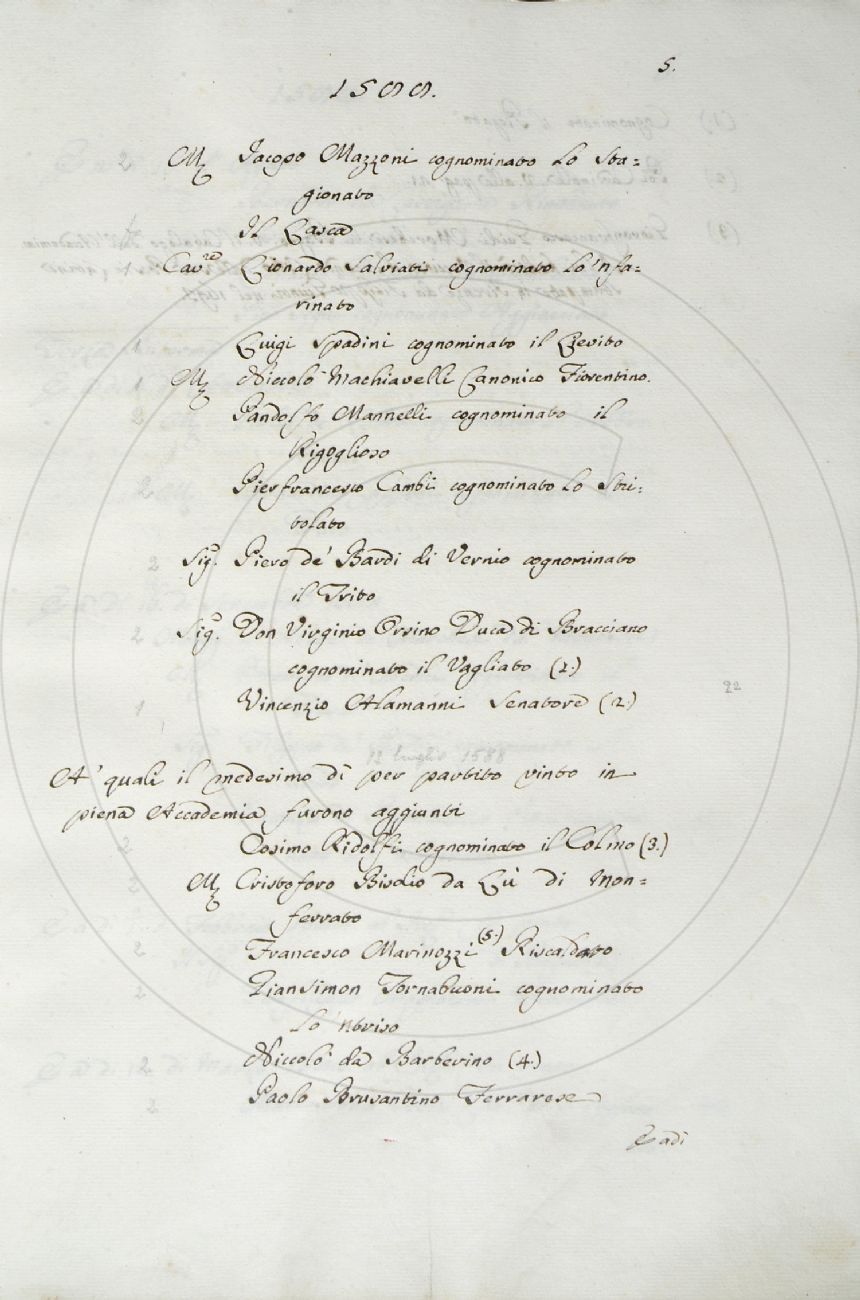 5.
1588.
M. Jacopo Mazzoni cognominato Lo Sta=
gionato
Il Lasca
Cav.re Lionardo Salviati cognominato Lo 'nfa=
rinato
Luigi Spadini cognominato il Lievito
M. Niccolò Machiavelli Canonico Fiorentino.
Pandolfo Mannelli cognominato il
Rigoglioso
Pierfrancesco Cambi cognominato Lo Stri=
tolato
Sig. Piero de' Bardi di Vernio cognominato
il Trito
Sig. Don Virginio Orsino Duca di Bracciano
cognominato il Vagliato (1.)
Vincenzio Alamanni Senatore (2.)
22
12 luglio 1588
A' quali il medesimo dì per partito vinto in
piena Accademia furono aggiunti
Cosimo Ridolfi cognominato il Colmo (3.)
M. Cristoforo da Lù di Mon=
ferrato
Francesco Marinozzi (5.) Riscaldato
Giansimon Tornabuoni cognominato
Lo 'ntriso
Niccolò da Barberino (4.)
Paolo Brusantino Ferrarese
E adì